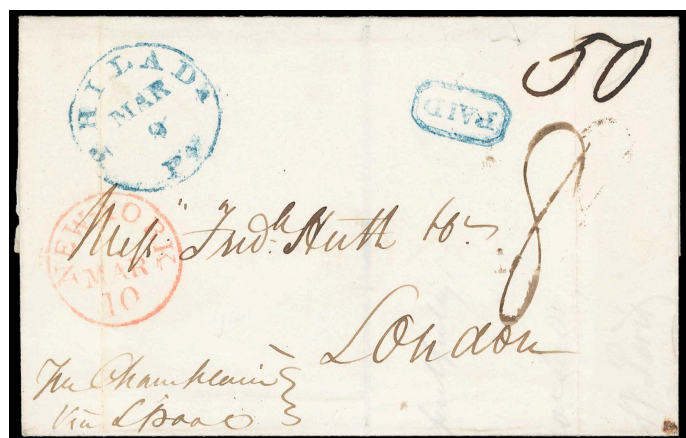 PHILADA
MAR
9
Pa
PAID
50
8
NEW YORK
MAR
10
Mess" Fredk Huth & Co
London
Per Champlain
Via L'pool